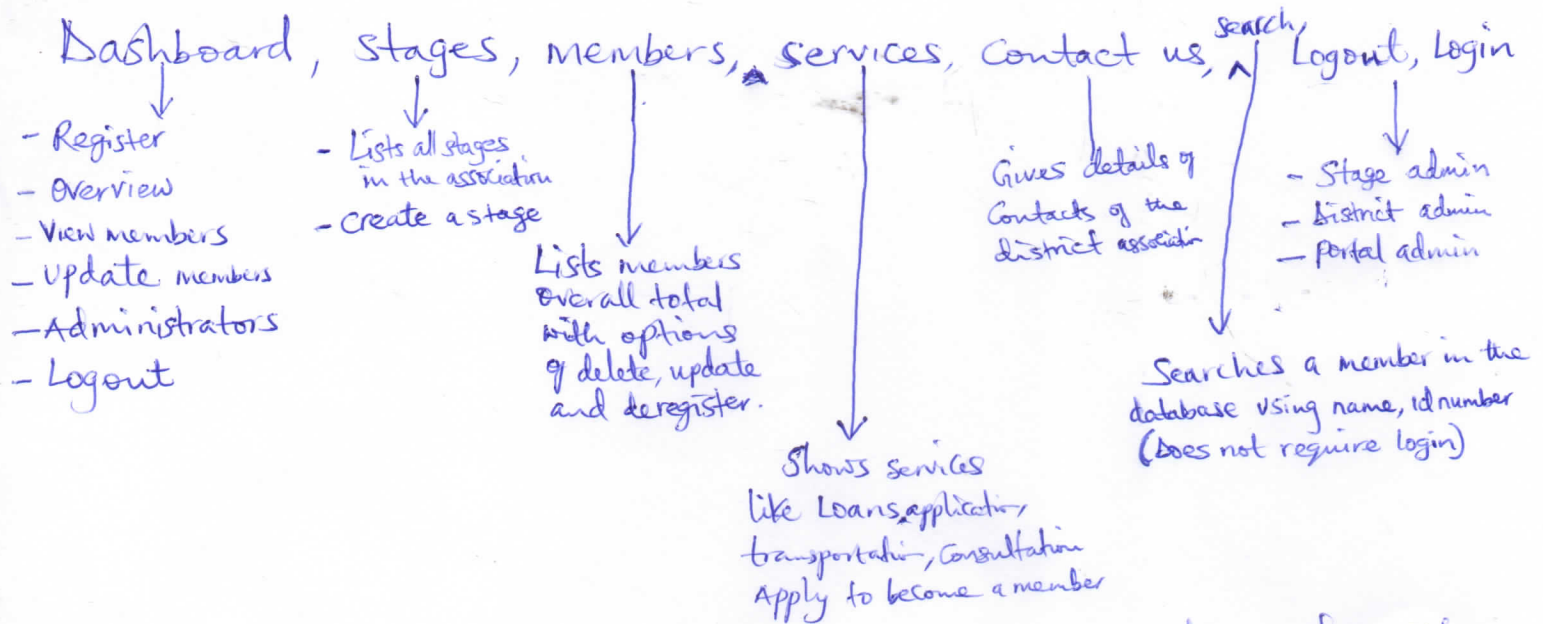 Dashboard, stages, members, services, Contact us, search, Logout, Login
- Register
- Overview
- View members
- Update members
- Administrators
- Logout
- Lists all stages
in the association
- create a stage
Lists members
overall total
with options
of delete, update
and deregister.
Shows services
like Loans, application,
transportation, Consultation
Apply to become a member
Gives details of
Contacts of the
district association
Searches a member in the
database using name, id number
(Does not require login)
- Stage admin
- District admin
- Portal admin